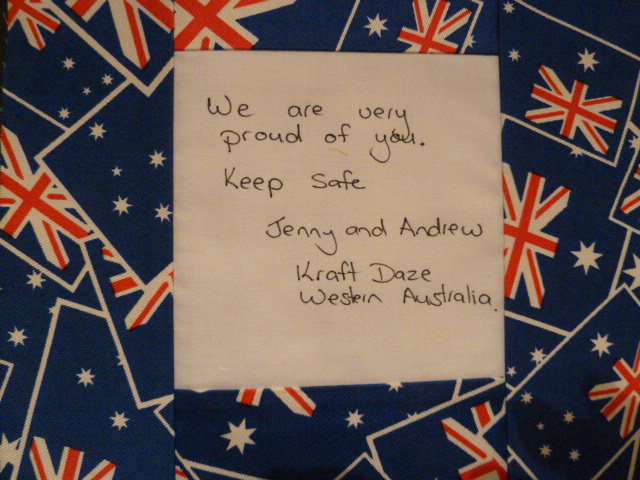 We are very
proud of you.
Keep Safe
Jenny and Andrew
Kraft Daze
Western Australia.